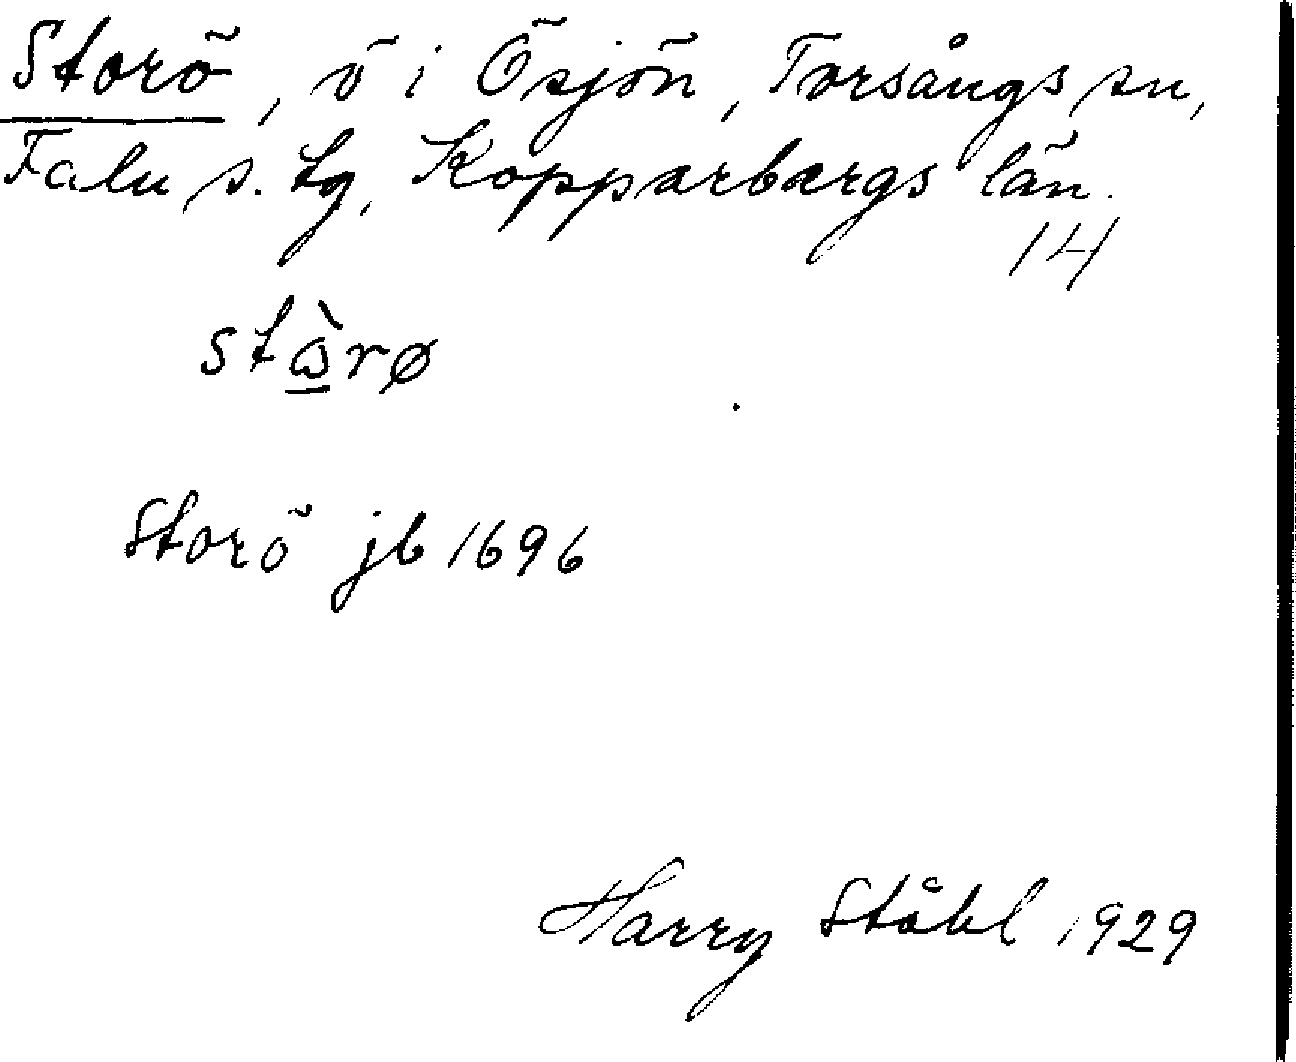 Storö, ö i Ösjön, Torsångs sn,
Falu s. tg, Kopparbergs län.
14
stὼ̲rø
Storö jb 1696
Harry Ståhl 1929